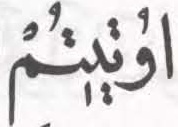 اُوتِيتُمْ